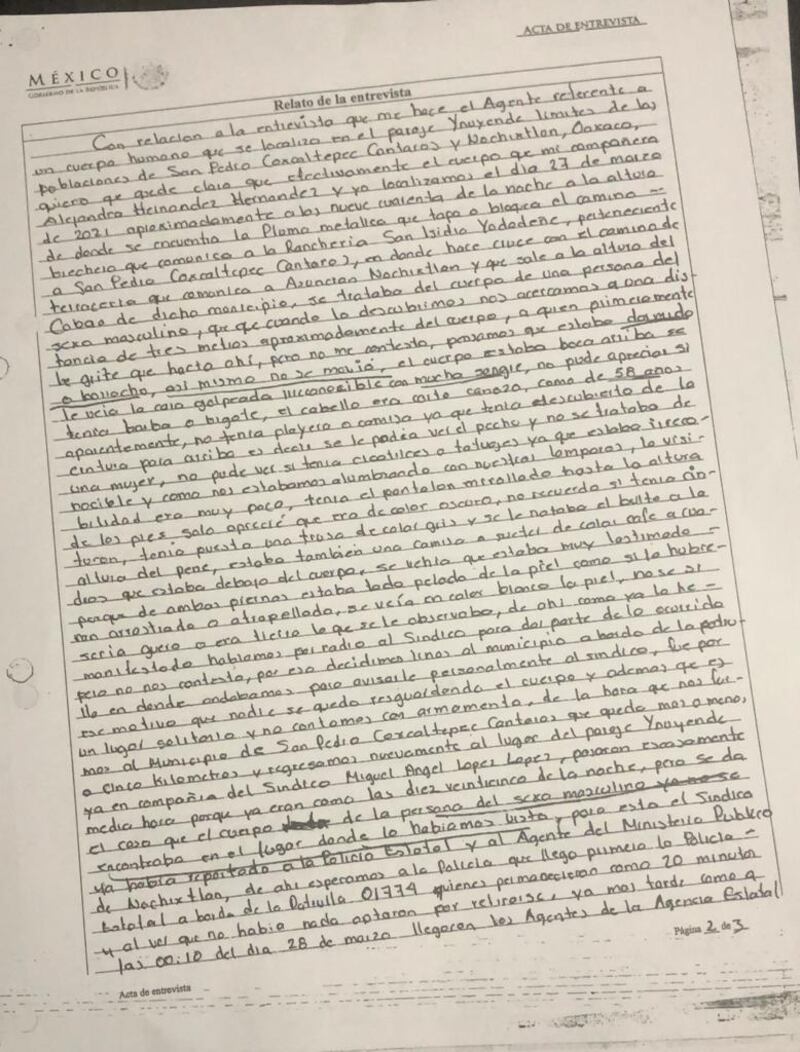 ACTA DE ENTREVISTA
MÉXICO
GOBIERNO DE LA REPÚBLICA
Relato de la entrevista
Con relacion a la entrevista que me hace el Agente referente a
un cuerpo humano que se localizo en el paraje Ynuyende limites de las
poblaciones de San Pedro Coxcaltepec Cantaros y Nochixtlon, Oaxaca,
quiero que quede claro que efectivamente el cuerpo que mi compañero
Alejandro Hernandez Hernandez y yo localizamos el dia 27 de marzo
de 2021 aproximadamente a las nueve cuarenta de la noche a la altura
de donde se encuentra la Pluma metalica que tapa o bloquea el camino -
brecheio que comunica a la Rancheria San Isidro Yododeñe, perteneciente
a San Pedro Coxcaltepec Cantaros, en donde hace cruce con el camino de
terraceria que comunica a Asuncion Nochixtlon y que sale a la altura del
Cabao de dicho municipio, se trataba del cuerpo de una persona del
sexo masculino, que que cuando lo descubrimos nos acercamos a una dis-
tancia de tres metros aproximadamente del cuerpo, a quien primeramente
le grite que hacia ahí, pero no me contesto, pensamos que estaba dormido
o borracho, asi mismo no se movió, el cuerpo estaba boca arriba se
le veia la cara golpeada irreconosible con mucha sangre, no pude apreciar si
tenia barba o bigote, el cabello era corto canoso, como de 58 años
aparentemente, no tenia playera o camisa ya que tenia descubierto de la
cintura para arriba es decir se le podia ver el pecho y no se trataba de
una mujer, no pude ver si tenia cicatrices o tatuajes ya que estaba irreco-
nocible y como nos estabamos alumbrando con nuestras lamparas, la visi-
bilidad era muy poca, tenia el pantalon enrollado hasta la altura
de los pies, solo aprecié que era de color oscuro, no recuerdo si tenia cin-
turon, tenia puesta una trusa de color gris y se le notaba el bulto a la
altura del pene, estaba también una camisa o sueter de color cafe a cua-
dros que estaba debajo del cuerpo, se vehia que estaba muy lastimado -
porque de ambas piernas estaba todo pelado de la piel como si lo hubie-
ran arrastrado o atropellado, se veía en color blanco la piel, no se si
seria guero o era tierra lo que se le observaba, de ahi como ya lo he -
manifestado hablamos por radio al Sindico para dar parte de lo ocurrido
pero no nos contesto, por eso decidimos irnos al municipio a bordo de la patru-
lla en donde andabamos para avisarle personalmente al sindico, fue por
ese motivo que nadie se quedo resguardando el cuerpo y ademas que es
un lugar solitario y no contamos con armamento, de la hora que nos fui-
mos al Municipio de San Pedro Coxcaltepec Cantaros que queda mas o menos
a cinco kilometros y regresamos nuevamente al lugar del paraje Ynuyende
ya en compañia del Sindico Miguel Angel Lopez Lopez, pasaron escasamente
media hora porque ya eran como las diez veinticinco de la noche, pero se da
el caso que el cuerpo de la persona del sexo masculino ya no se
encontraba en el lugar donde lo habiamos visto y para esto el Sindico
ya habia reportado a la Policia Estatal y al Agente del Ministerio Publico
de Nochixtlon, de ahi esperamos a la Policia que llego primero la Policia -
Estatal a bordo de la Patrulla 01774 quienes permanecieron como 20 minutos
y al ver que no habia nada optaron por retirarse, ya mas tarde como a
las 00:10 del dia 28 de marzo llegaron los Agentes de la Agencia Estatal
Página 2 de 3
Acta de entrevista